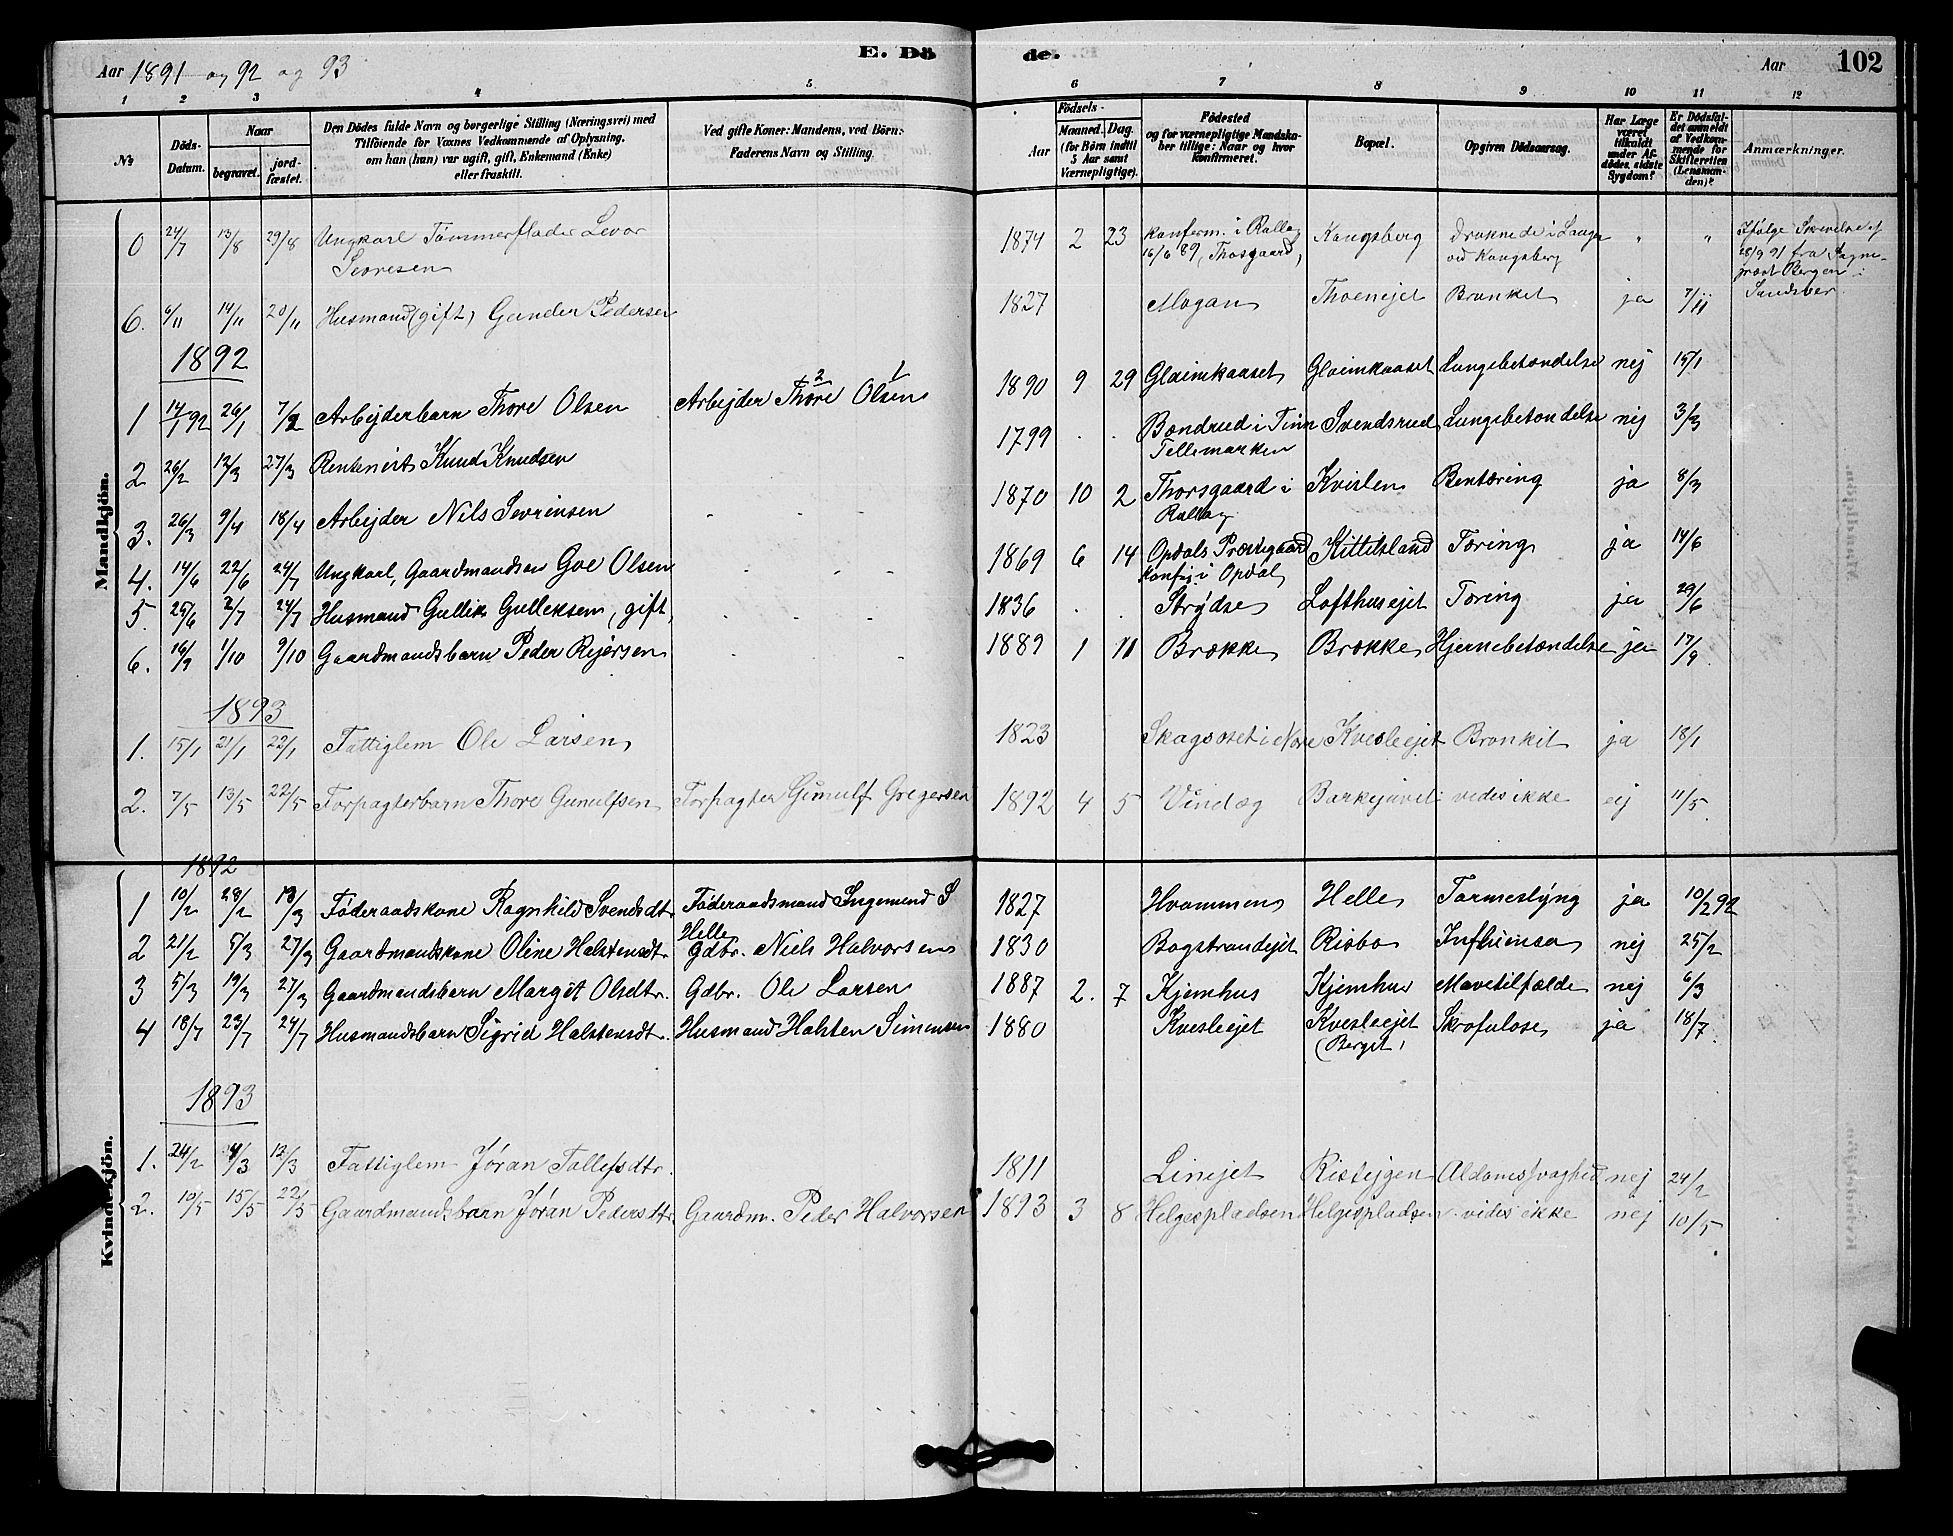 Aar 1891 og 92 og 93
E. Dö
de.
Aar
102
1 2 3 4 5
6 7 8 9 10 11 12
No
Döds-Datum.
Naar
begravet.
jord-fæstet.
Den Dödes fulde Navn og borgerlige Stilling (Næringsvei) med
Tilföiende for Voxnes Vedkommende af Oplysning,
om han (hun) var ugift, gift, Enkemand (Enke)
eller fraskilt.
Ved gifte Koner: Mandens, ved Börn:
Faderens Navn og Stilling.
Födsels-
Aar
Maaned. Dag.
(for Börn indtil
5 Aar samt
Værnepligtige).
Födested
og for værnepligtige Mandska-
ber tillige: Naar og hvor
konfirmeret.
Bopæl.
Opgiven Dödsaarsag.
Har Læge
været
tilkaldt
under Af-
dödes sidste
Sygdom?
Er Dödsfal-
det anmeldt
af Vedkom-
mende for
Skifteretten
(Lensman-
den)?
Anmærkninger.
Mandkjön.
0 24/7 13/8 29/8 Ungkarl Tömmerfløder Levor Sevresen 1874 2 23 konferm. i Rollag 16/6 89, Thosgaard, Kongsberg Druknede i Laagen ved Kongsberg " " Ifølge Skrivelse af 28/9 91 fra Sogne-prest Bergen i Sandsver
6. 6/11 14/11 20/11 Husmand (gift) Gunder Pedersen 1827 Mogan Thoenejet Bronket ja 7/11
1892
1 14/1 92 26/1 7/2 Arbejderbarn Thore Olsen Arbejder Thore Olsen 1890 9 29 Glaimkaaset Glaimkaaset Lungebetændelse nej 15/1
2 26/2 12/3 27/3 Rentenist Knud Knudsen 1799 . . Bøndrud i Tinn Tellemarken Svendsrud Lungebetændelse nej 3/3
3. 26/3 9/4 18/4 Arbejder Nils Sevrinsen 1870 10 2 Thorsgaard i Rollag Kvislen Bentæring ja 8/3
4. 14/6 22/6 24/7 Ungkarl, Gaardmandsøn Goe Olsen 1869 6 14 Opdals Præstegaard konf. i Opdal Kittilsland Tæring ja 14/6
5 25/6 2/7 24/7 Husmand Gullik Gulleksen, gift, 1836 . . Strydse Lofthusejet Tæring ja 29/6
6. 16/9 1/10 9/10 Gaardmandsbarn Peder Rejersen 1889 1 11 Brække Brække Hjernebetændelse ja 17/9
1893
1. 15/1 21/1 22/1 Fattiglem Ole Larsen 1823 Skogsøset i Nore Kvesleejet Bronkit ja 18/1
2. 7/5 13/5 22/5 Forpagterbarn Thore Gunulfsen Forpagter Gunulf Gregersen 1892 4 5 Vindeg Barkejuvet vides ikke ej 11/5
Kvindekjön.
1892
1 10/2 28/2 13/3 Føderaadskone Ragnhild Svendsdt Føderaadsmand Ingemund S Helle 1827 Hvammen Helle Tarmeslyng ja 10/2 92
2 21/2 5/3 27/3 Gaardmandskone Oline Halstensdt. Gdbr. Niels Halvorsen 1830 Bogstrandejet Risbø Influensa nej 25/2
3 5/3 19/3 27/3 Gaardmandsbarn Margit Olsdtr. Gdbr. Ole Larsen 1887 2. 7 Kjemhus Kjemhus Mavetilfælde nej 6/3
4 18/7 23/7 24/7 Husmandsbarn Sigrid Halstensdt. Husmand Halsten Simensen 1880 Kvesleejet Kvesleejet (Berget) Skrofulose, ja 18/7
1893
1. 24/2 4/3 12/3 Fattiglem Jøran Tollefsdtr. 1811 Linejet Risteigen Aldomssvaghed nej 24/2
2. 10/5 15/5 22/5 Gaardmandsbarn Jøran Pedersdtr Gaardm. Peder Halvorsen 1893 3 8 Helgespladsen Helgespladsen vides ikke nej 10/5